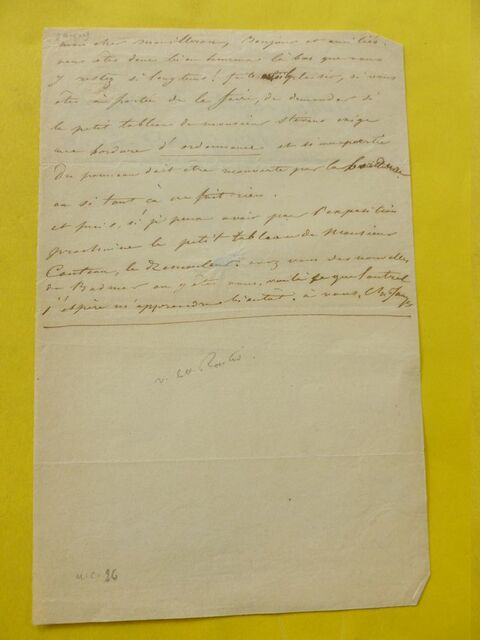 mon cher mouilleron, Bonjour et amitiés.
vous êtes donc bien heureux là bas que vous
y restez si longtems! faites moi plaisir, si vous
êtes à portée de le faire, de demander si
le petit tableau de monsieur Stevens exige
une bordure d'ordonnance et si une partie
du panneau doit être recouverte par la bordure
ou si tout ça ne fait rien.
et puis, si je peux avoir pour l'exposition
prochaine le petit tableau de Monsieur
le Rémouleur. avez vous des nouvelles
de
j'espère m'apprendre bientôt. à vous,
v.
u.c. 26